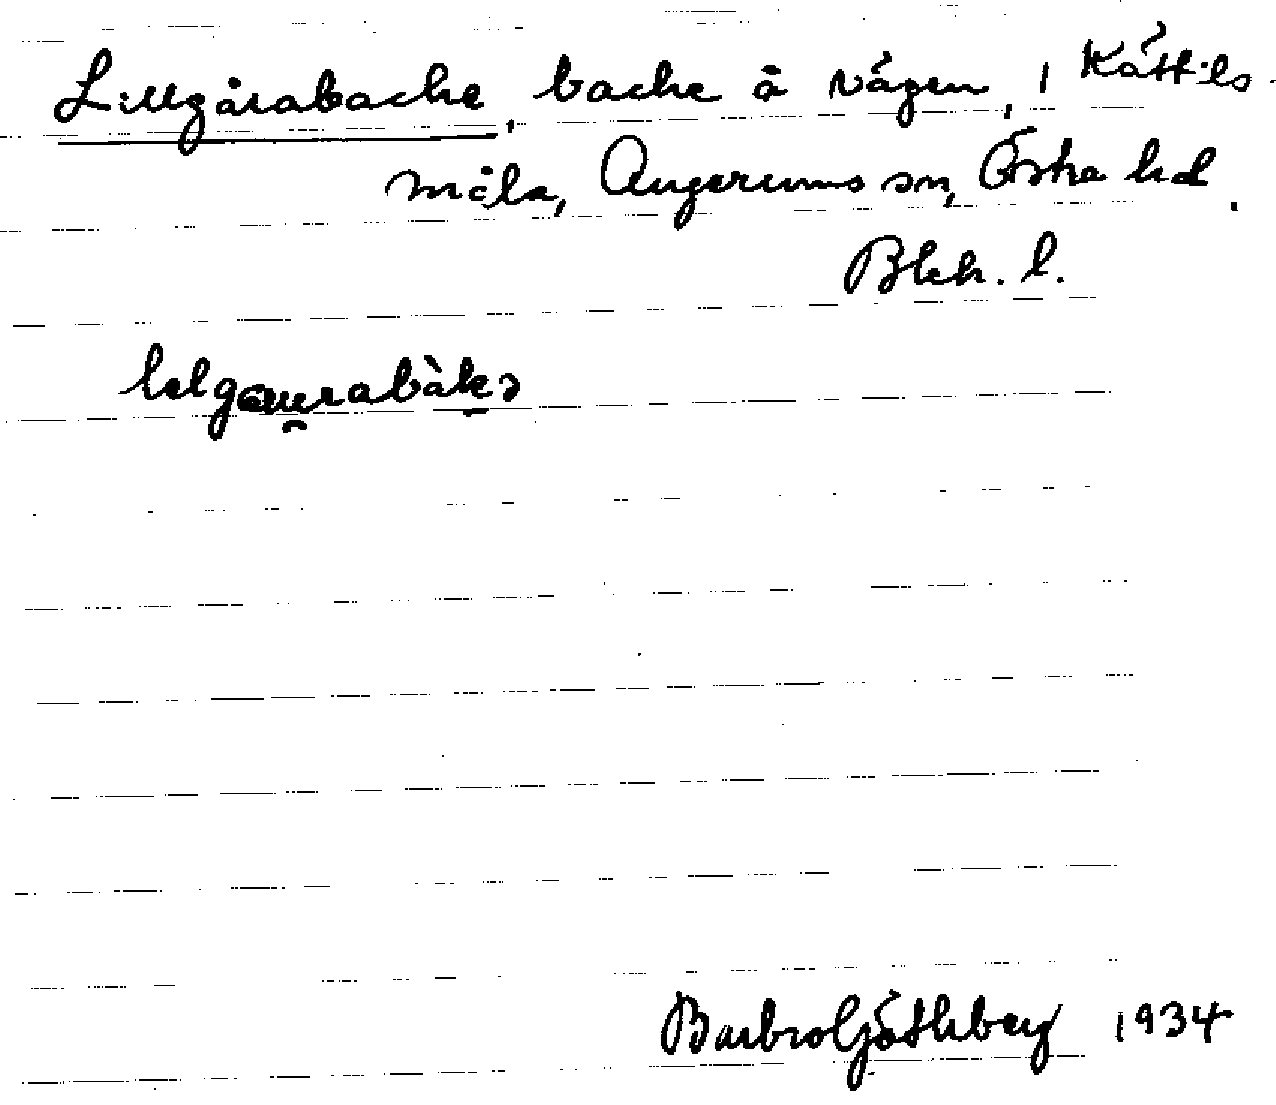 Lillgårabacke, backe å vägen, i Kättils-
måla, Augerums sn, Östra hd.
Blek. l.
Barbro Göthberg 1934